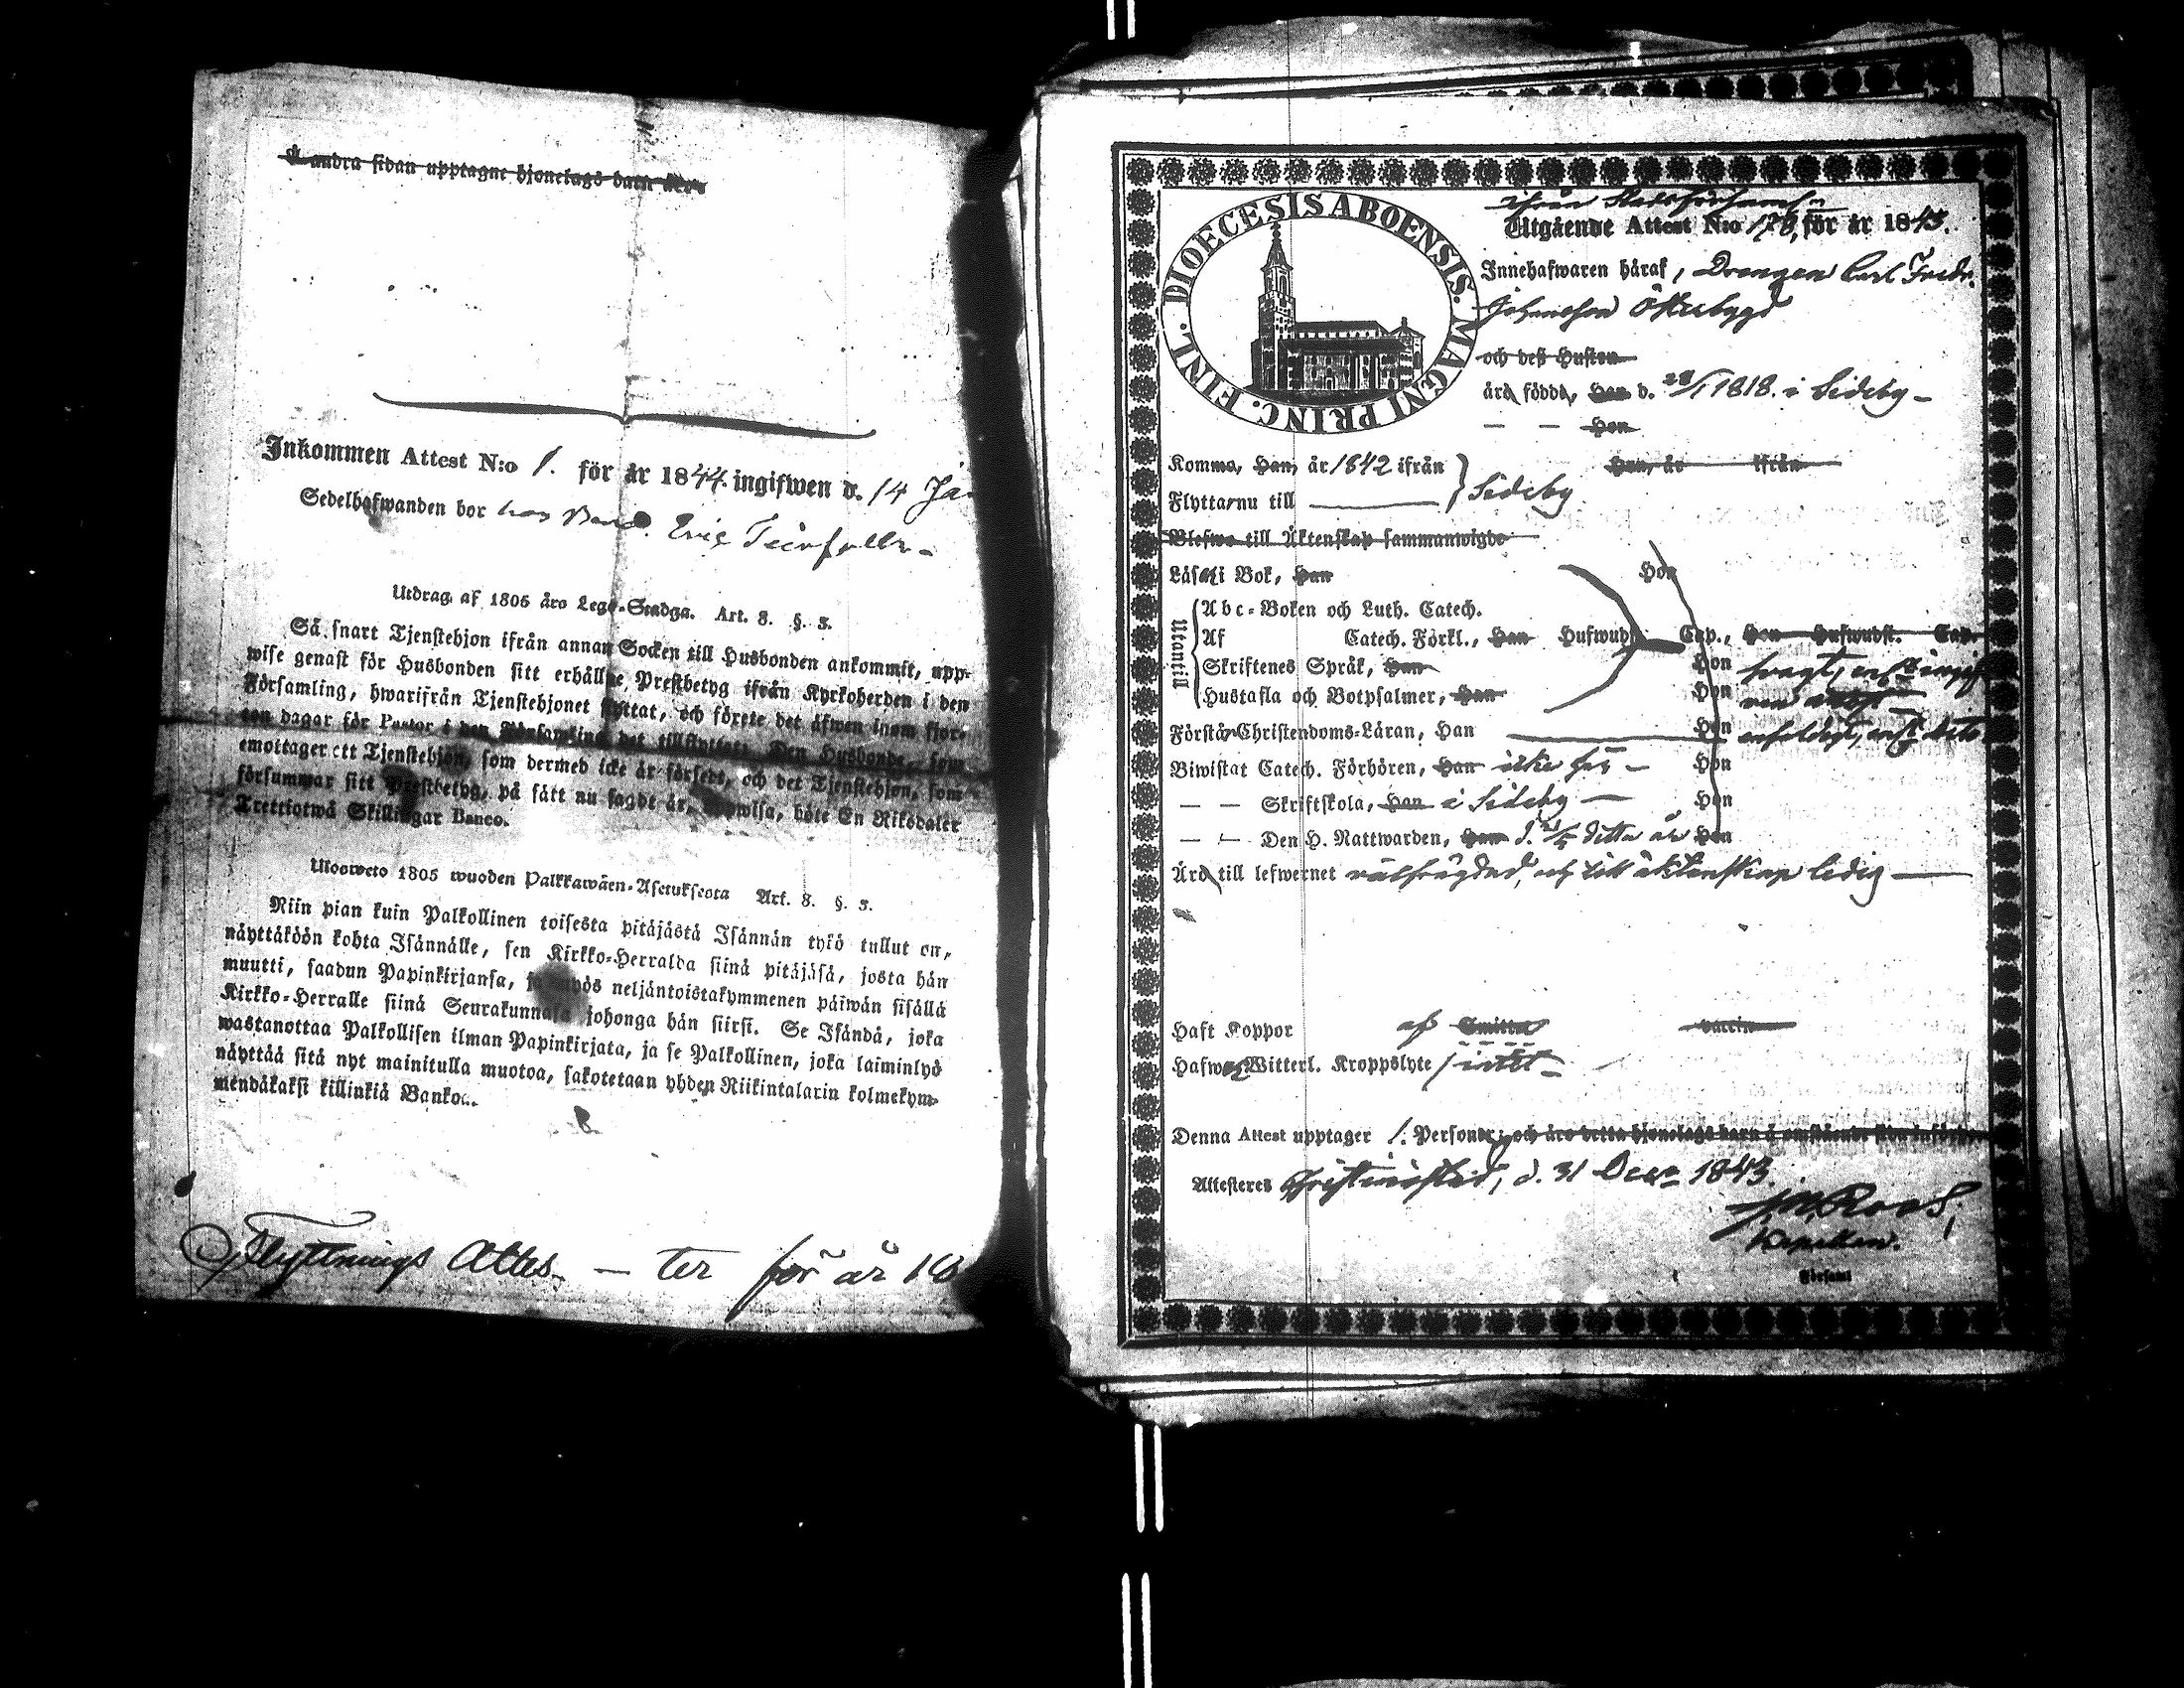 Å andra sidan upptagne hjonelags barn äro:
Inkommen Attest N:o 1. för år 1844 ingifwen d. 14 Ja
Sedelhafwanden bor hos Eric
Utdrag af 1805 års Lego-Stadga. Art. 8. §. 3.
Så snart Tjenstehjon ifrån annan Socken till Husbonden ankommit, upp-
wise genast för Husbonden sitt erhållne Prestbetyg ifrån Kyrkoherden i den
Församling, hwarifrån Tjenstehjonet flyttat, och förete det äfwen inom fjor-
ton dagar för Pastor i den Församling det tillflyttat. Den Husbonde, som
emottager ett Tjenstehjon, som dermed icke är försedt, och det Tjenstehjon, som
försummar sitt Prestbetyg, på sätt nu sagdt är, upwisa, böte En Riksdaler
Trettiotwå Skillingar Banco.
Ulosweto 1805 wuoden Palkkawäen-Asetuksesta Art. 8. §. 3.
Niin pian kuin Palkollinen toisesta pitäjästä Isännän tykö tullut on,
näyttäköön kohta Isännälle, sen Kirkko-Herralda siinä pitäjäsä, josta hän
muutti, saadun Papinkirjansa, ja myös neljäntoistakymmenen päiwän sisällä
Kirkko-Herralle siinä Seurakunnasa johonga hän siirsi. Se Isändä, joka
wastanottaa Palkollisen ilman Papinkirjata, ja se Palkollinen, joka laiminlyö
näyttää sitä nyt mainitulla muotoa, sakotetaan yhden Riikintalarin kolmekym-
mendäkaksi killinkiä Banko.
Flyttnings Attes - ter för år 18
DIOECESIS ABOENSIS. MAGNI PRINC. FINL.
ifrån Stadsförsaml.
Utgående Attest N:o 178, för år 1843.
Innehafwaren häraf, Drengen Carl Fredr.
Johansson Österbygd
och deß Hustru
äro födde, Han d. 28/1 1818. i Sideby -
— — Hon
Komma, Han, år 1842 ifrån } Sideby Hon, år ifrån
Flytta nu till
Blefwo till Äktenskap sammanwigde
Läsa i Bok, Han Hon
Utantill
Abc-Boken och Luth. Catech.
Af Catech. Förkl., Han Hufwudst. Cap., Hon Hufwudst. Cap.
Skriftenes Språk, Han Hon
Hustafla och Botpsalmer, Han Hon
Förstår Christendoms-Läran, Han Hon
Biwistat Catech. Förhören, Han icke här - Hon
— — Skriftskola, Han i Sideby — Hon
— — Den H. Nattwarden, Han d. detta år Hon
Äro till lefwernet välfrägdad, och till äktenskap ledig —
Haft Koppor af Smitta vaccin
Hafwa Witterl. Kroppslyte intet -
Denna Attest upptager 1. Personer, och äro detta hjonelags barn å omstående sida införde
Attesteras Christinestad, d. 31 Decr 1843.
Roos.
Kapellan.
Församl